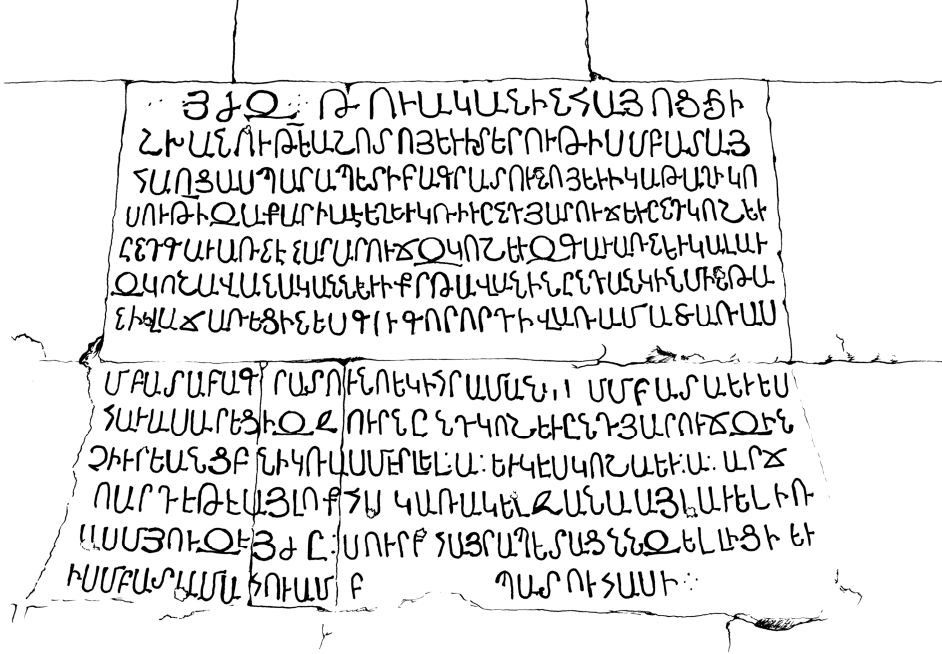 ՅԺԶ : ԹՈՒԱԿԱՆԻՆՀԱՅՈՑՅԻ
ՇԽԱՆՈՒԹԵԱՇՈՏՈՅԵՒԻՏԵՐՈՒԹԻՍՄԲԱՏԱՅ
ՀԱՂՑԱՍՊԱՐԱՊԵՏԻԲԱԳՐԱՏՈՒՆՈՅԵՒԻԿԱԹԱՂԻԿՈ
ՍՈՒԹԻԶԱՔԱՐԻԱԷԵՂԵՒԿՌԻՒԸՆԴՅԱՐՈՒՃԵՒԸՆԴԿՈՇԵՒ
ԸՆԴԳԱՒԱՌՆԷՇԱՐԱՐՈՒՃԶԿՈՇԵՒԶԳԱՒԱՌՆԵՒԿԱԼԱՒ
ԶԿՈՇԱՎԱՆԱԿԱՆՆԵՒԻՔՐԹԱՎԱՆԻՆԸՆԴԱՆԿԻՆՄԻՆԹԱ
ՆԻՎԱՃԱՌԵՑԻՆԵՍԳԻԳՈՐՈՐԴԻՎԱՌԱՄԱԾԱՌԱՍ
ՄԲԱՏԱԲԱԳՐԱՏՈՒՆՈԵԿԻՀՐԱՄԱՆԱՒ ՍՄԲԱՏԱԵՒԵՍ
ՀԱՒԱՍԱՐԵՑԻԶՋՈՒՐՆԸՆԴԿՈՇԵՒԸՆԴՅԱՐՈՒՃԶԻՆ
ՉԻՒՐԵԱՆՑԲՆԻԿՌԱՍՄԷՐԼԵԼ:Ա: ԵՒԿԷՍԿՈՇԱԵՒ:Ա: ԱՐՃ
ՈԱՐԴԵԹԵԱՅԼՈՔՀԱԿԱՌԱԿԵԼՋԱՆԱԱՅԼԱՒԵԼԻՌ
ԱՍՄՅՈՒԶԷՅԺԸ:ՍՈՒՐԲՀԱՅՐԱՊԵՏԱՑՆՆԶՈՎԵԼԼԻՑԻԵՒ
ԻՍՄԲԱՏԱԱՄԱՀՈՒԱՄԲ ՊԱՏՈՒՀԱՍԻ